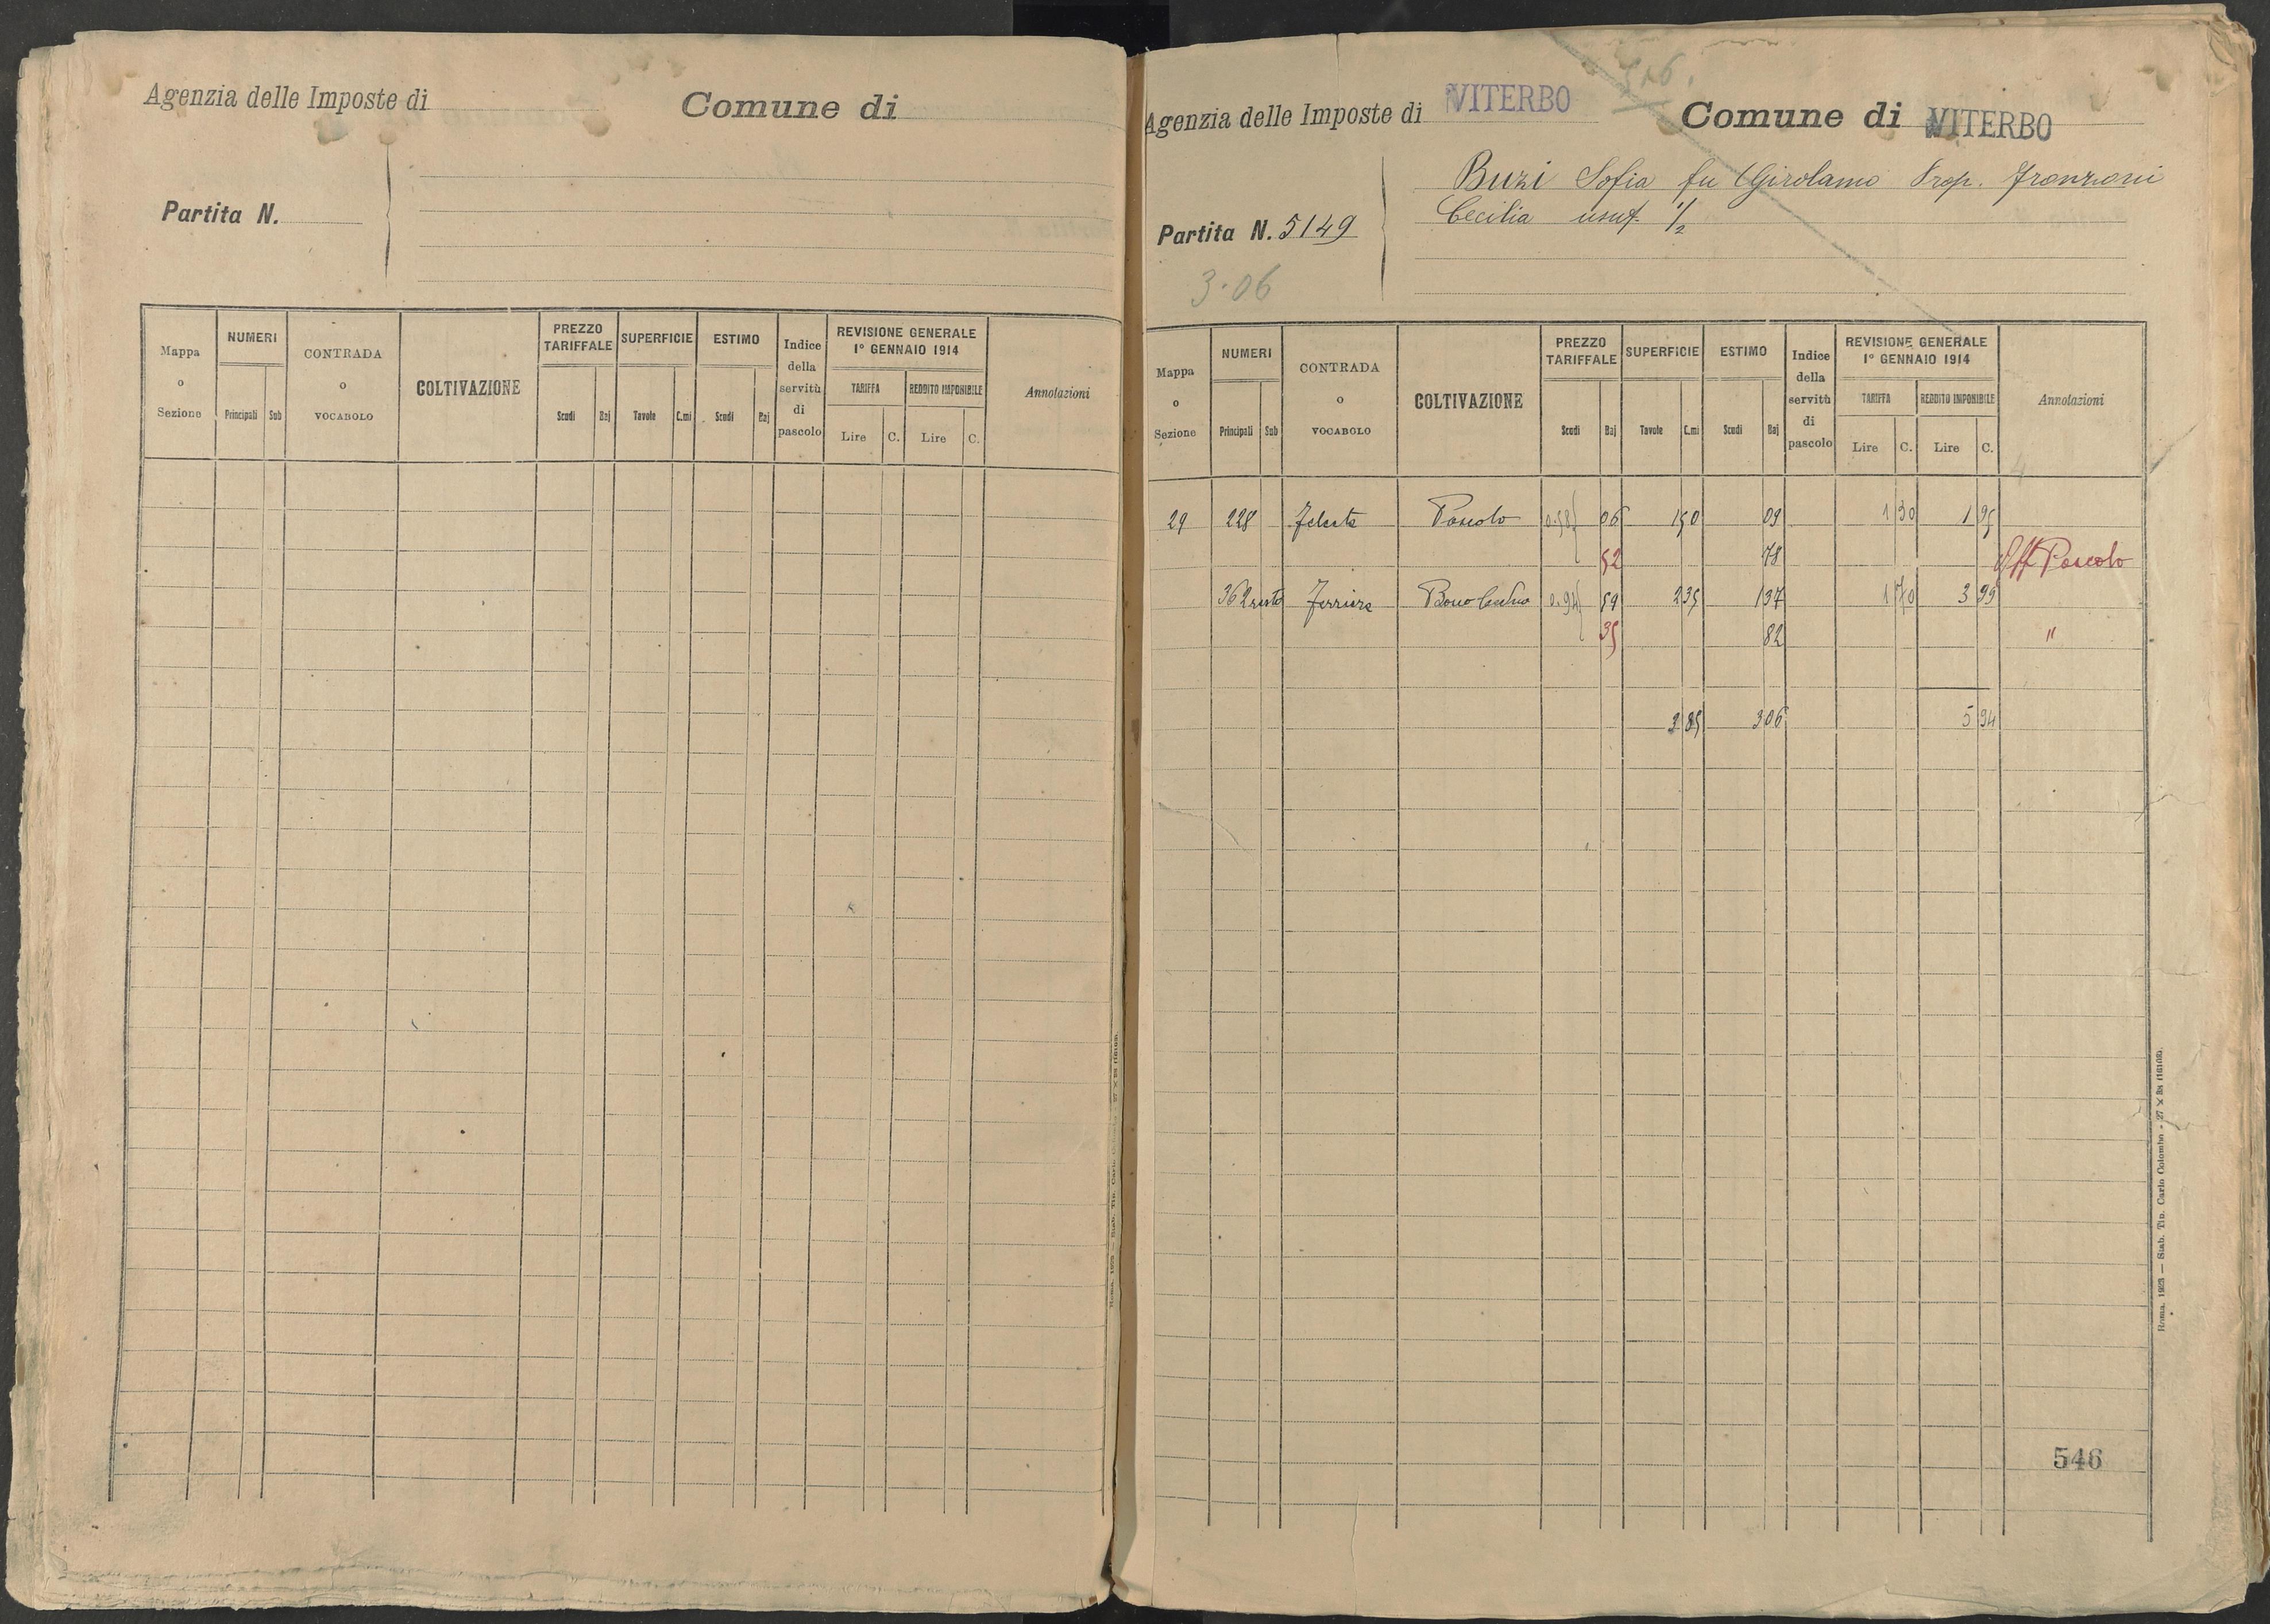 Agenzia delle Imposte di
Comune di
Partita N.
Mappa o Sezione
NUMERI
Principali Sub
CONTRADA o VOCABOLO
COLTIVAZIONE
PREZZO TARIFFALE
Scudi Baj
SUPERFICIE
Tavole C.mi
ESTIMO
Scudi Baj
Indice della servitù di pascolo
REVISIONE GENERALE
1º GENNAIO 1914
TARIFFA REDDITO IMPONIBILE
Lire C. Lire C.
Annotazioni
Agenzia delle Imposte di VITERBO
Comune di VITERBO
Partita N. 5149
3.06
Buzi Sofia fu Girolamo Prop. Franzoni
Cecilia usuf. 1/2
Mappa o Sezione
NUMERI
Principali Sub
CONTRADA o VOCABOLO
COLTIVAZIONE
PREZZO TARIFFALE
Scudi Baj
SUPERFICIE
Tavole C.mi
ESTIMO
Scudi Baj
Indice della servitù di pascolo
REVISIONE GENERALE
1º GENNAIO 1914
TARIFFA REDDITO IMPONIBILE
Lire C. Lire C.
Annotazioni
29 228 Pascolo 0.58 06 1 50 09 1 30 1 95
52 78 Aff Pascolo
362 resto Ferriera Bosco Ceduo 0.94 59 2 35 1 37 1 70 3 99
35 82 "
3 85 3 06 5 94
546
Roma, 1923 — Stab. Tip. Carlo Colombo - 27 × 38 (16109).